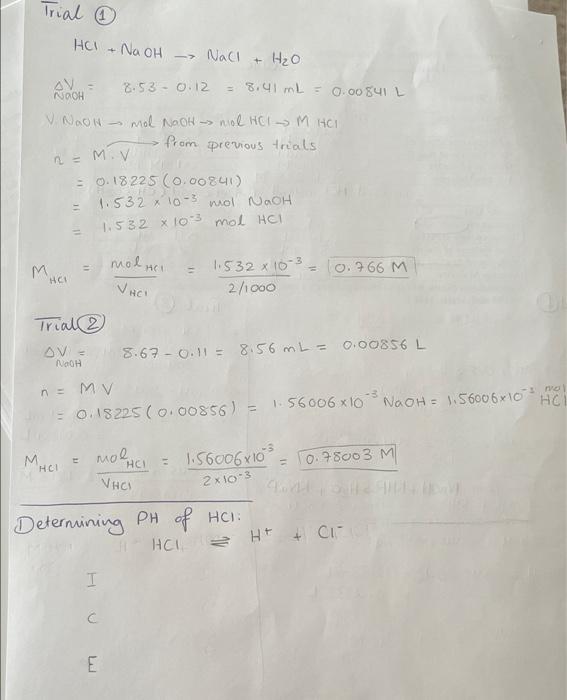 Trial ①
HCl + NaOH → NaCl + H₂O
ΔV NaOH = 8.53 - 0.12 = 8.41 mL = 0.00841 L
V. NaOH → mol NaOH → mol HCl → M HCl
n = M.V → from previous trials
= 0.18225 (0.00841)
= 1.532 × 10⁻³ mol NaOH
= 1.532 × 10⁻³ mol HCl
M HCl = mol HCl / V HCl = 1.532 × 10⁻³ / 2/1000 = 0.766 M
Trial ②
ΔV NaOH = 8.67 - 0.11 = 8.56 mL = 0.00856 L
n = MV
= 0.18225 (0.00856) = 1.56006 × 10⁻³ NaOH = 1.56006 × 10⁻³ mol HCl
M HCl = mol HCl / V HCl = 1.56006 × 10⁻³ / 2 × 10⁻³ = 0.78003 M
Determining PH of HCl:
HCl ⇌ H⁺ + Cl⁻
I
C
E